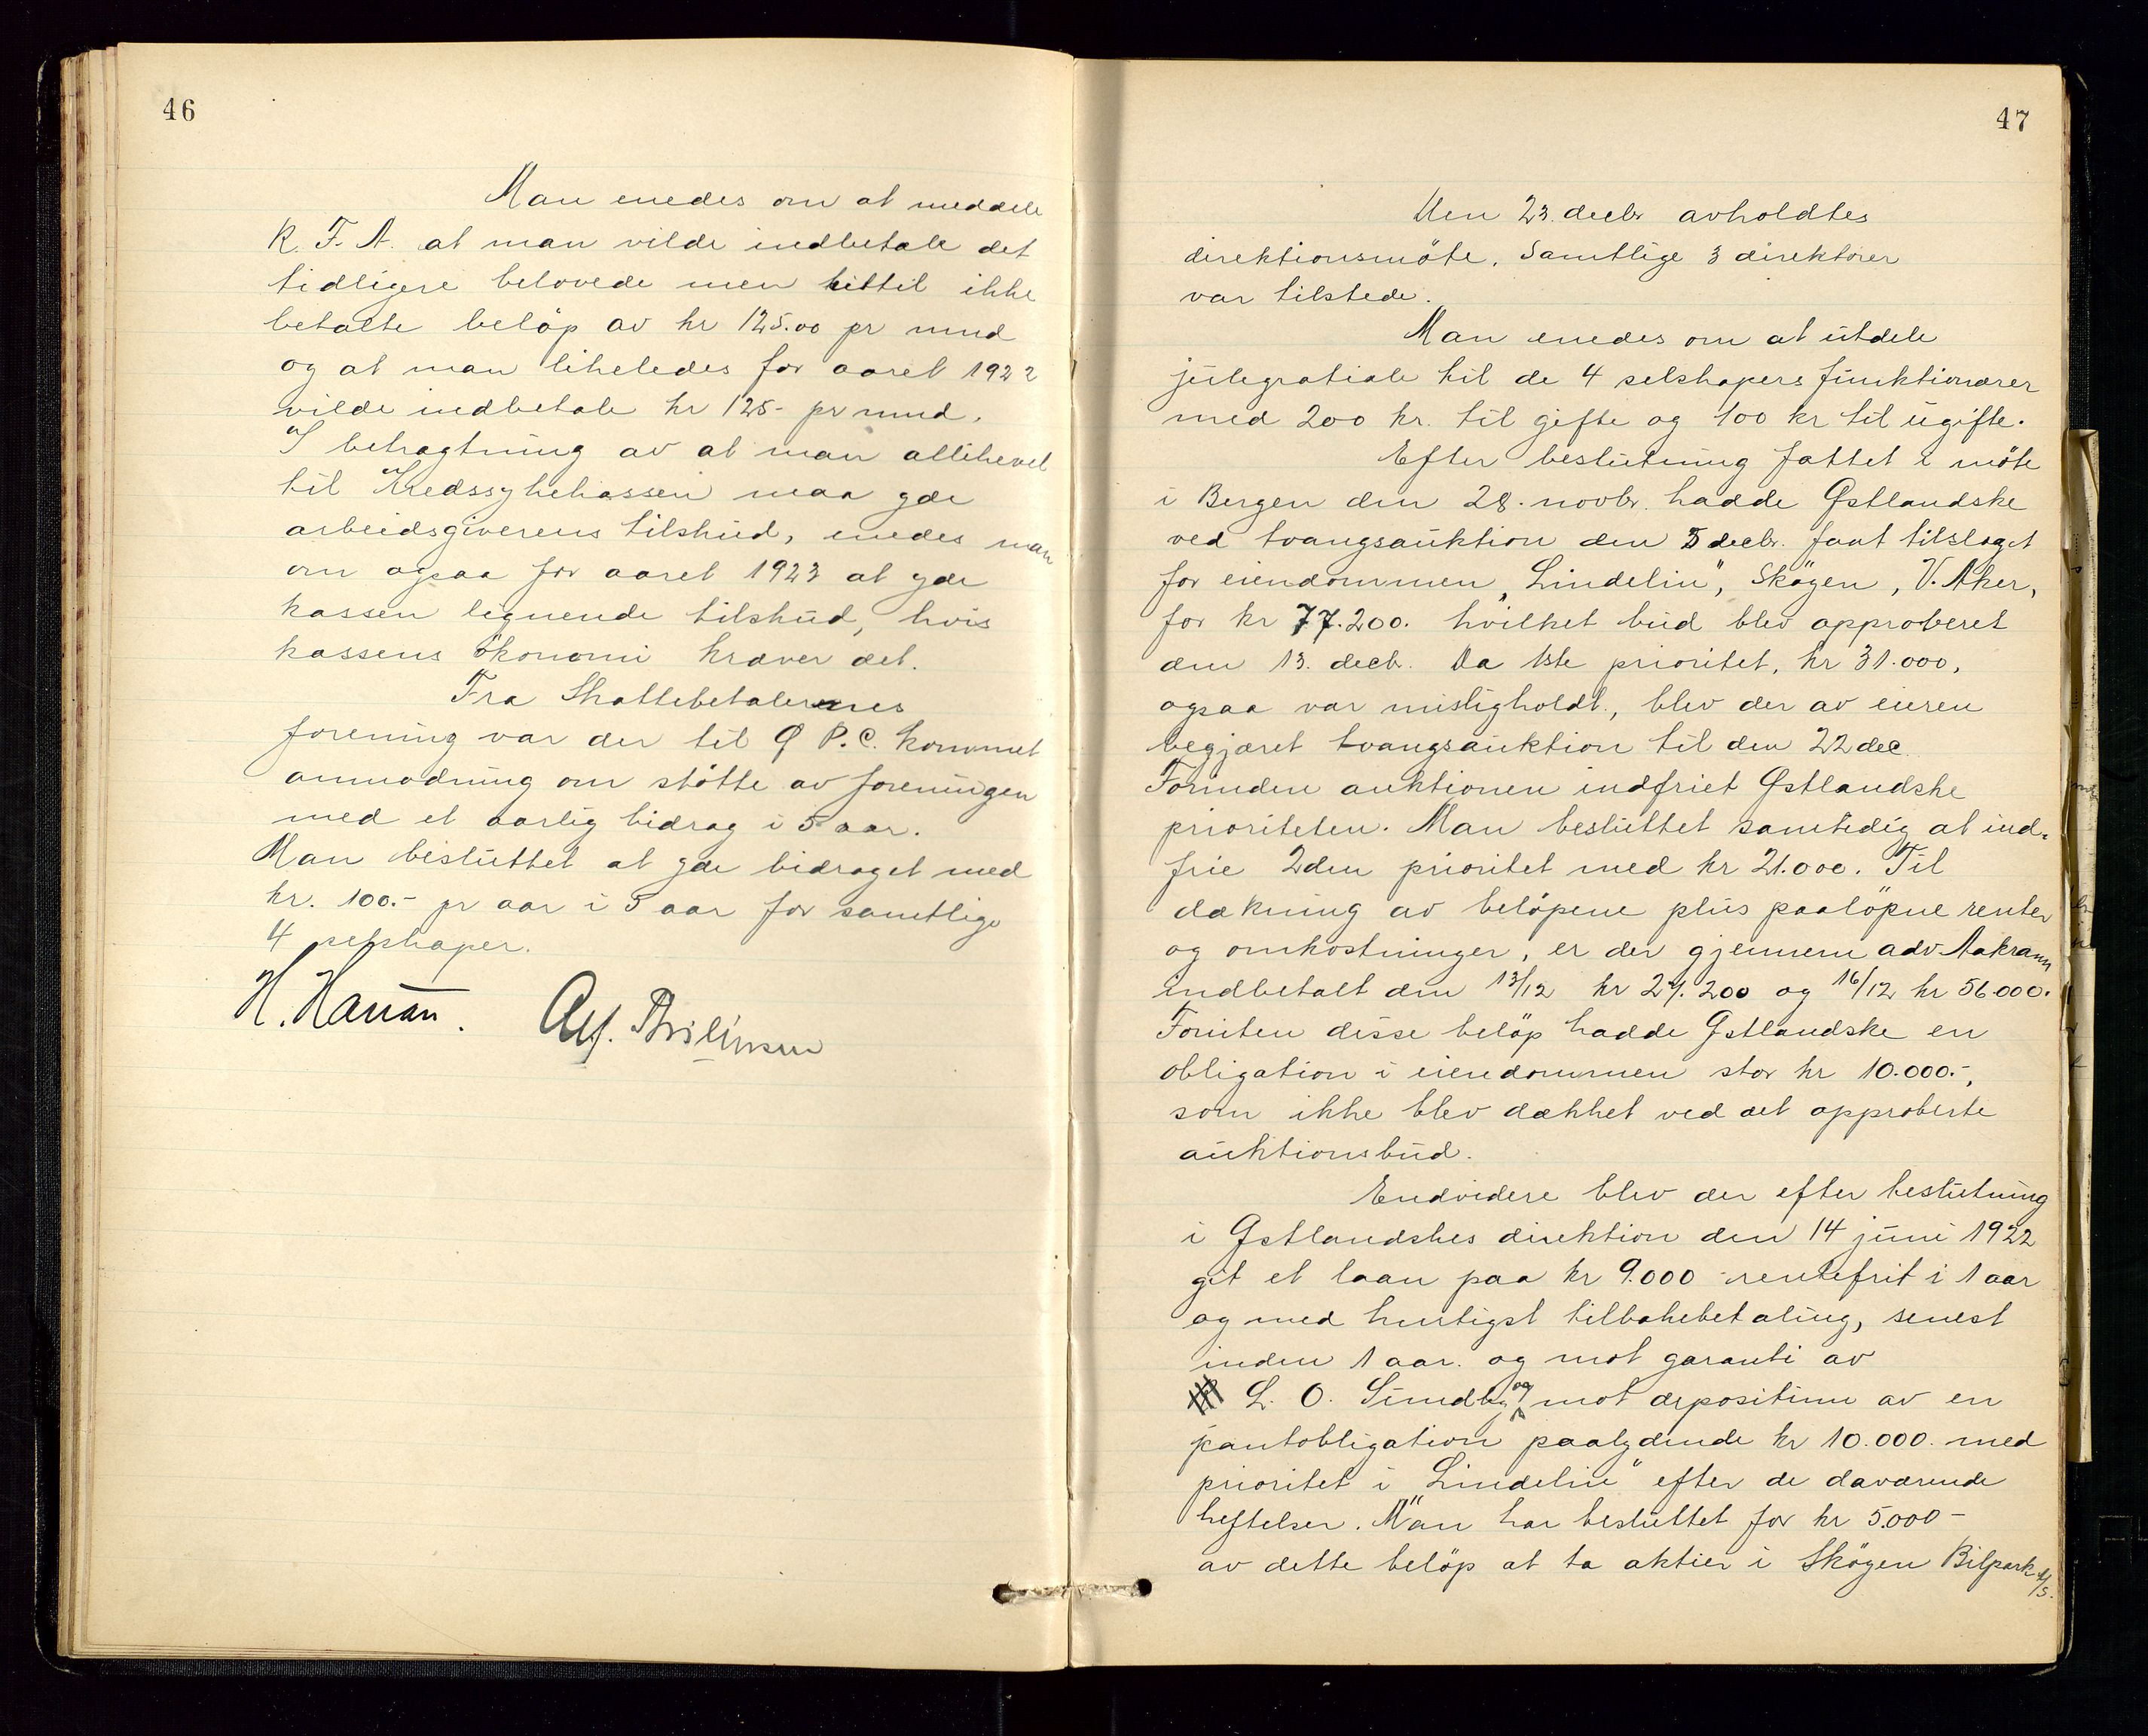 46
Man enedes om at meddele
K. F. A. at man vilde indbetale det
tidligere belovede men hittil ikke
betalte beløp av kr 125.00 pr mnd
og at man likeledes for aaret 1922
vilde indbetale kr 125- pr mnd.
I betragtning av at man allikevel
til Kredssykekassen maa yde
arbeidsgiverens tilskud, enedes man
om ogsaa for aaret 1923 at yde
kassen lignende tilskud, hvis
kassens økonomi kræver det.
Fra Skattebetalernes
forening var der til Ø P.C. kommet
anmodning om støtte av foreningen
med et aarlig bidrag i 5 aar.
Man besluttet at yde bidraget med
kr. 100.- pr aar i 5 aar for samtlige
4 selskaper.
H. Hansan. Alf.
47
Den 23. decbr avholdtes
direktionsmöte. Samtlige 3 direktører
var tilstede.
Man enedes om at utdele
julegratiale til de 4 selskapers funktionærer
med 200 kr. til gifte og 100 kr til ugifte.
Efter beslutning fattet i möte
i Bergen den 28. novbr. hadde Østlandske
ved tvangsauktion den 5 decbr. faat tilslaget
for eiendommen „Lindelin", Skøyen, V. Aker,
for kr 77.200. hvilket bud blev approberet
den 13. decbr. Da 1ste prioritet, kr 31.000,
ogsaa var misligholdt, blev der av eieren
begjæret tvangsauktion til den 22 dec.
Forinden auktionen indfriet Østlandske
prioriteten. Man besluttet samtidig at ind-
frie 2den prioritet med kr 21.000. Til
dækning av belöpene plus paalöpne renter
og omkostninger, er der gjennem adv. Aakrann
indbetalt den 13/12 kr 27.200 og 16/12 kr 56.000.
Foruten disse belöp hadde Østlandske en
obligation i eiendommen stor kr 10.000.-,
som ikke blev dækket ved det approberte
auktionsbud.
Endvidere blev der efter beslutning
i Østlandskes direktion den 14 juni 1922
git et laan paa kr 9.000 rentefrit i 1 aar
og med hurtigst tilbakebetaling, senest
inden 1 aar. og mot garanti av
L. O. Sundby og mot depositum av en
pantobligation paalydende kr 10.000. med
prioritet i "Lindelin" efter de daværende
heftelser. Man har besluttet for kr 5.000-
av dette belöp at ta aktier i Skøyen Bilpark A/S.